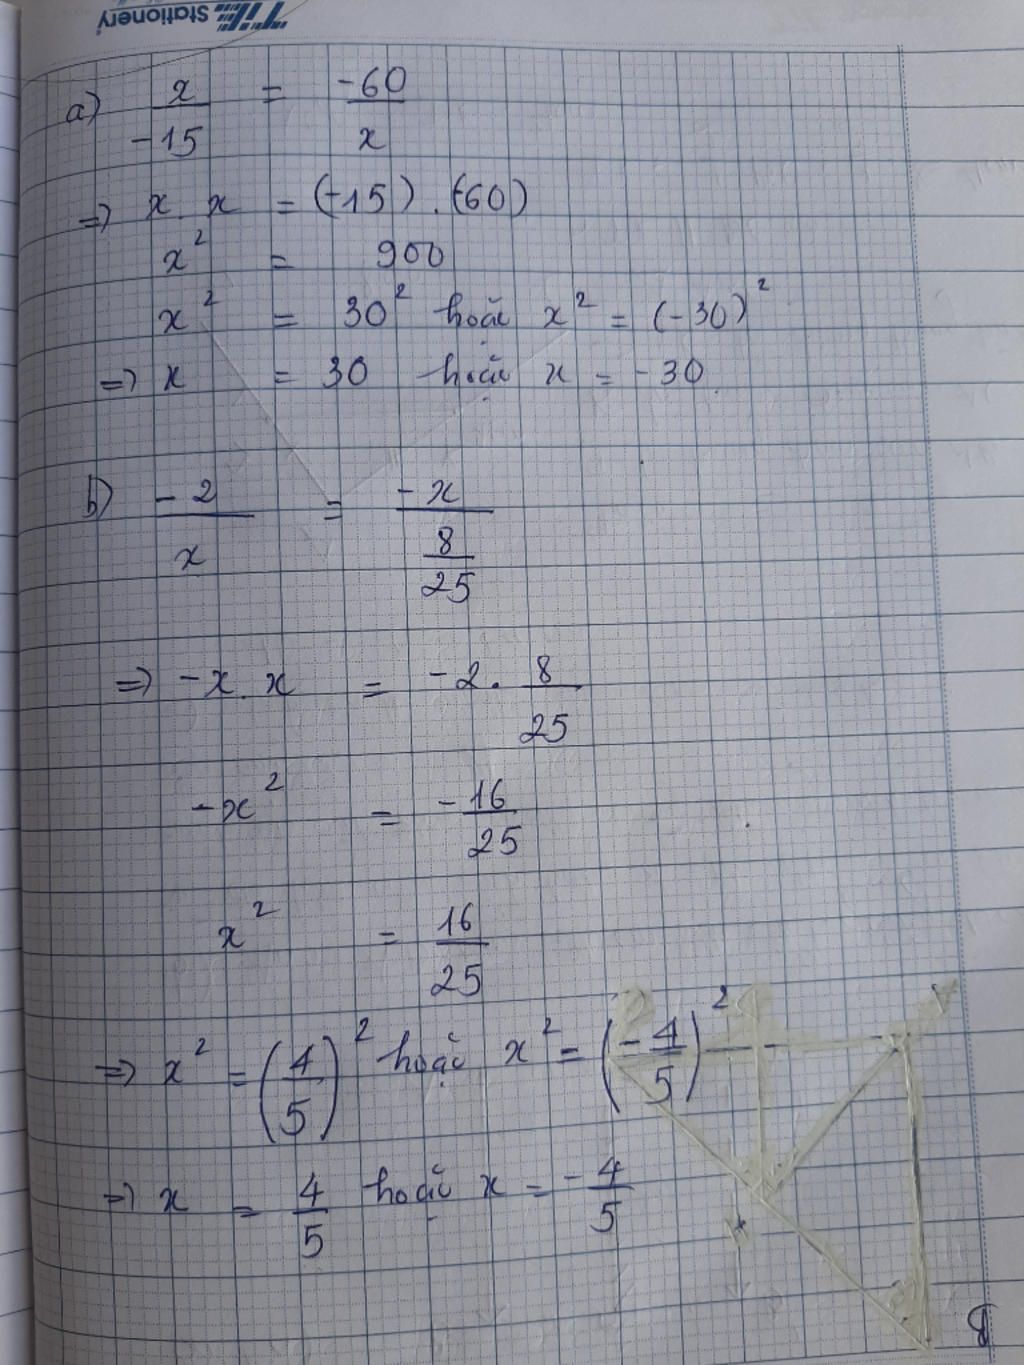 TTL Stationery
a) x/-15 = -60/x
=> x . x = (-15) . (-60)
x² = 900
x² = 30² hoặc x² = (-30)²
=> x = 30 hoặc x = -30
b) -2/x = -x/(8/25)
=> -x . x = -2 . 8/25
-x² = -16/25
x² = 16/25
=> x² = (4/5)² hoặc x² = (-4/5)²
=> x = 4/5 hoặc x = -4/5